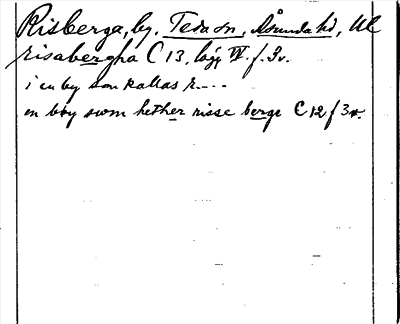 Risberga, by. Teda sn, Åsunda hd, Ul
risabergha C 13, lägg VI. f. 3v.
i en by som kallas r....
en bøy swom hether risse berge C 12 f 3v.